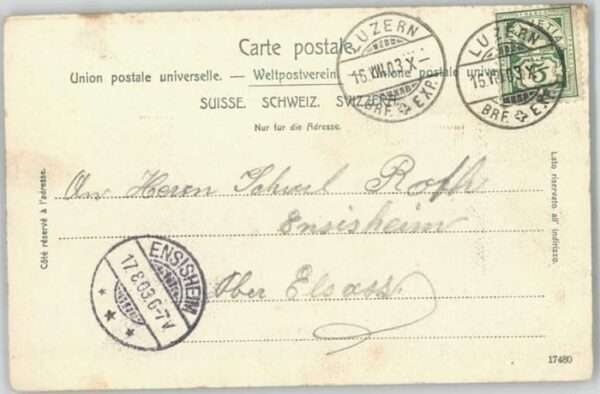 Carte postale.
Union postale universelle. — Weltpostverein. — Unione postale univer
SUISSE. SCHWEIZ. SVIZZERA.
Nur für die Adresse.
LUZERN
16.VIII.03.X–
BRF. EXP.
LUZERN
16.VIII.03.X–
BRF. EXP.
HELVETIA
5
Côté réservé à l'adresse.
Lato riservato all' indirizzo.
An Herrn
Ensisheim
Ober Elsass
ENSISHEIM
17.8.03.6-7V
17480